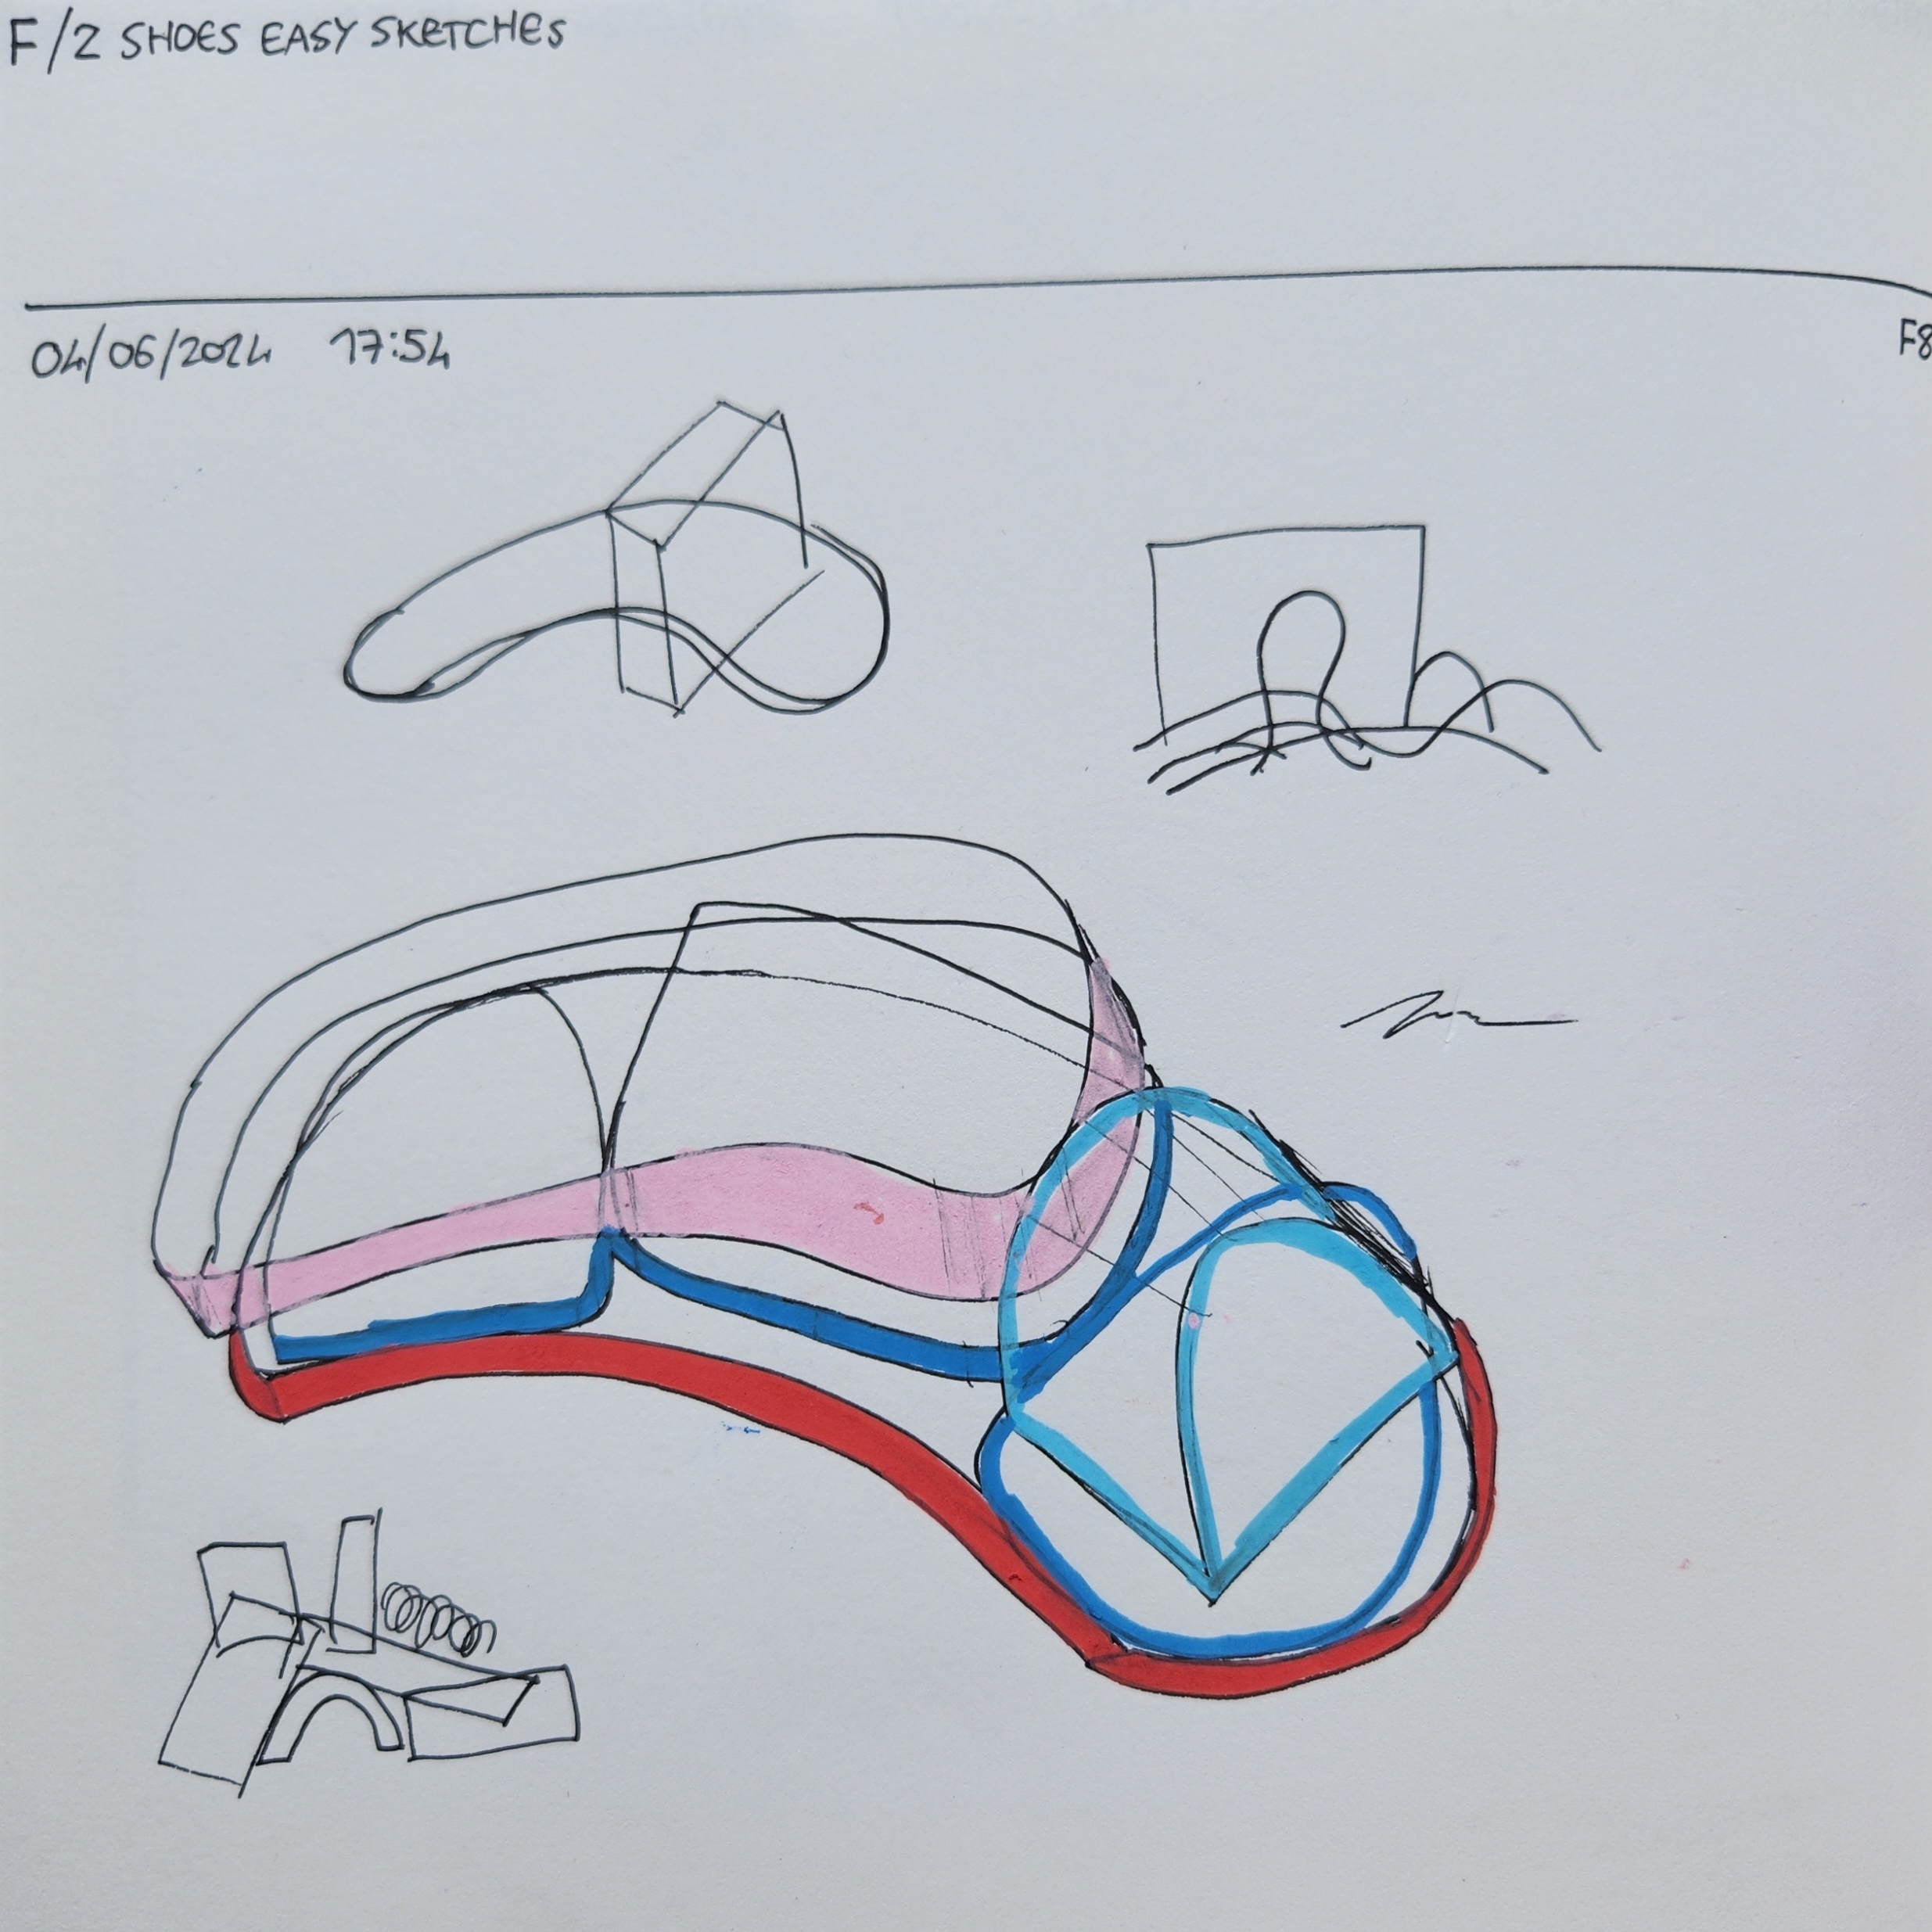 F/2 SHOES EASY SKETCHES
04/06/2024 17:54
F8